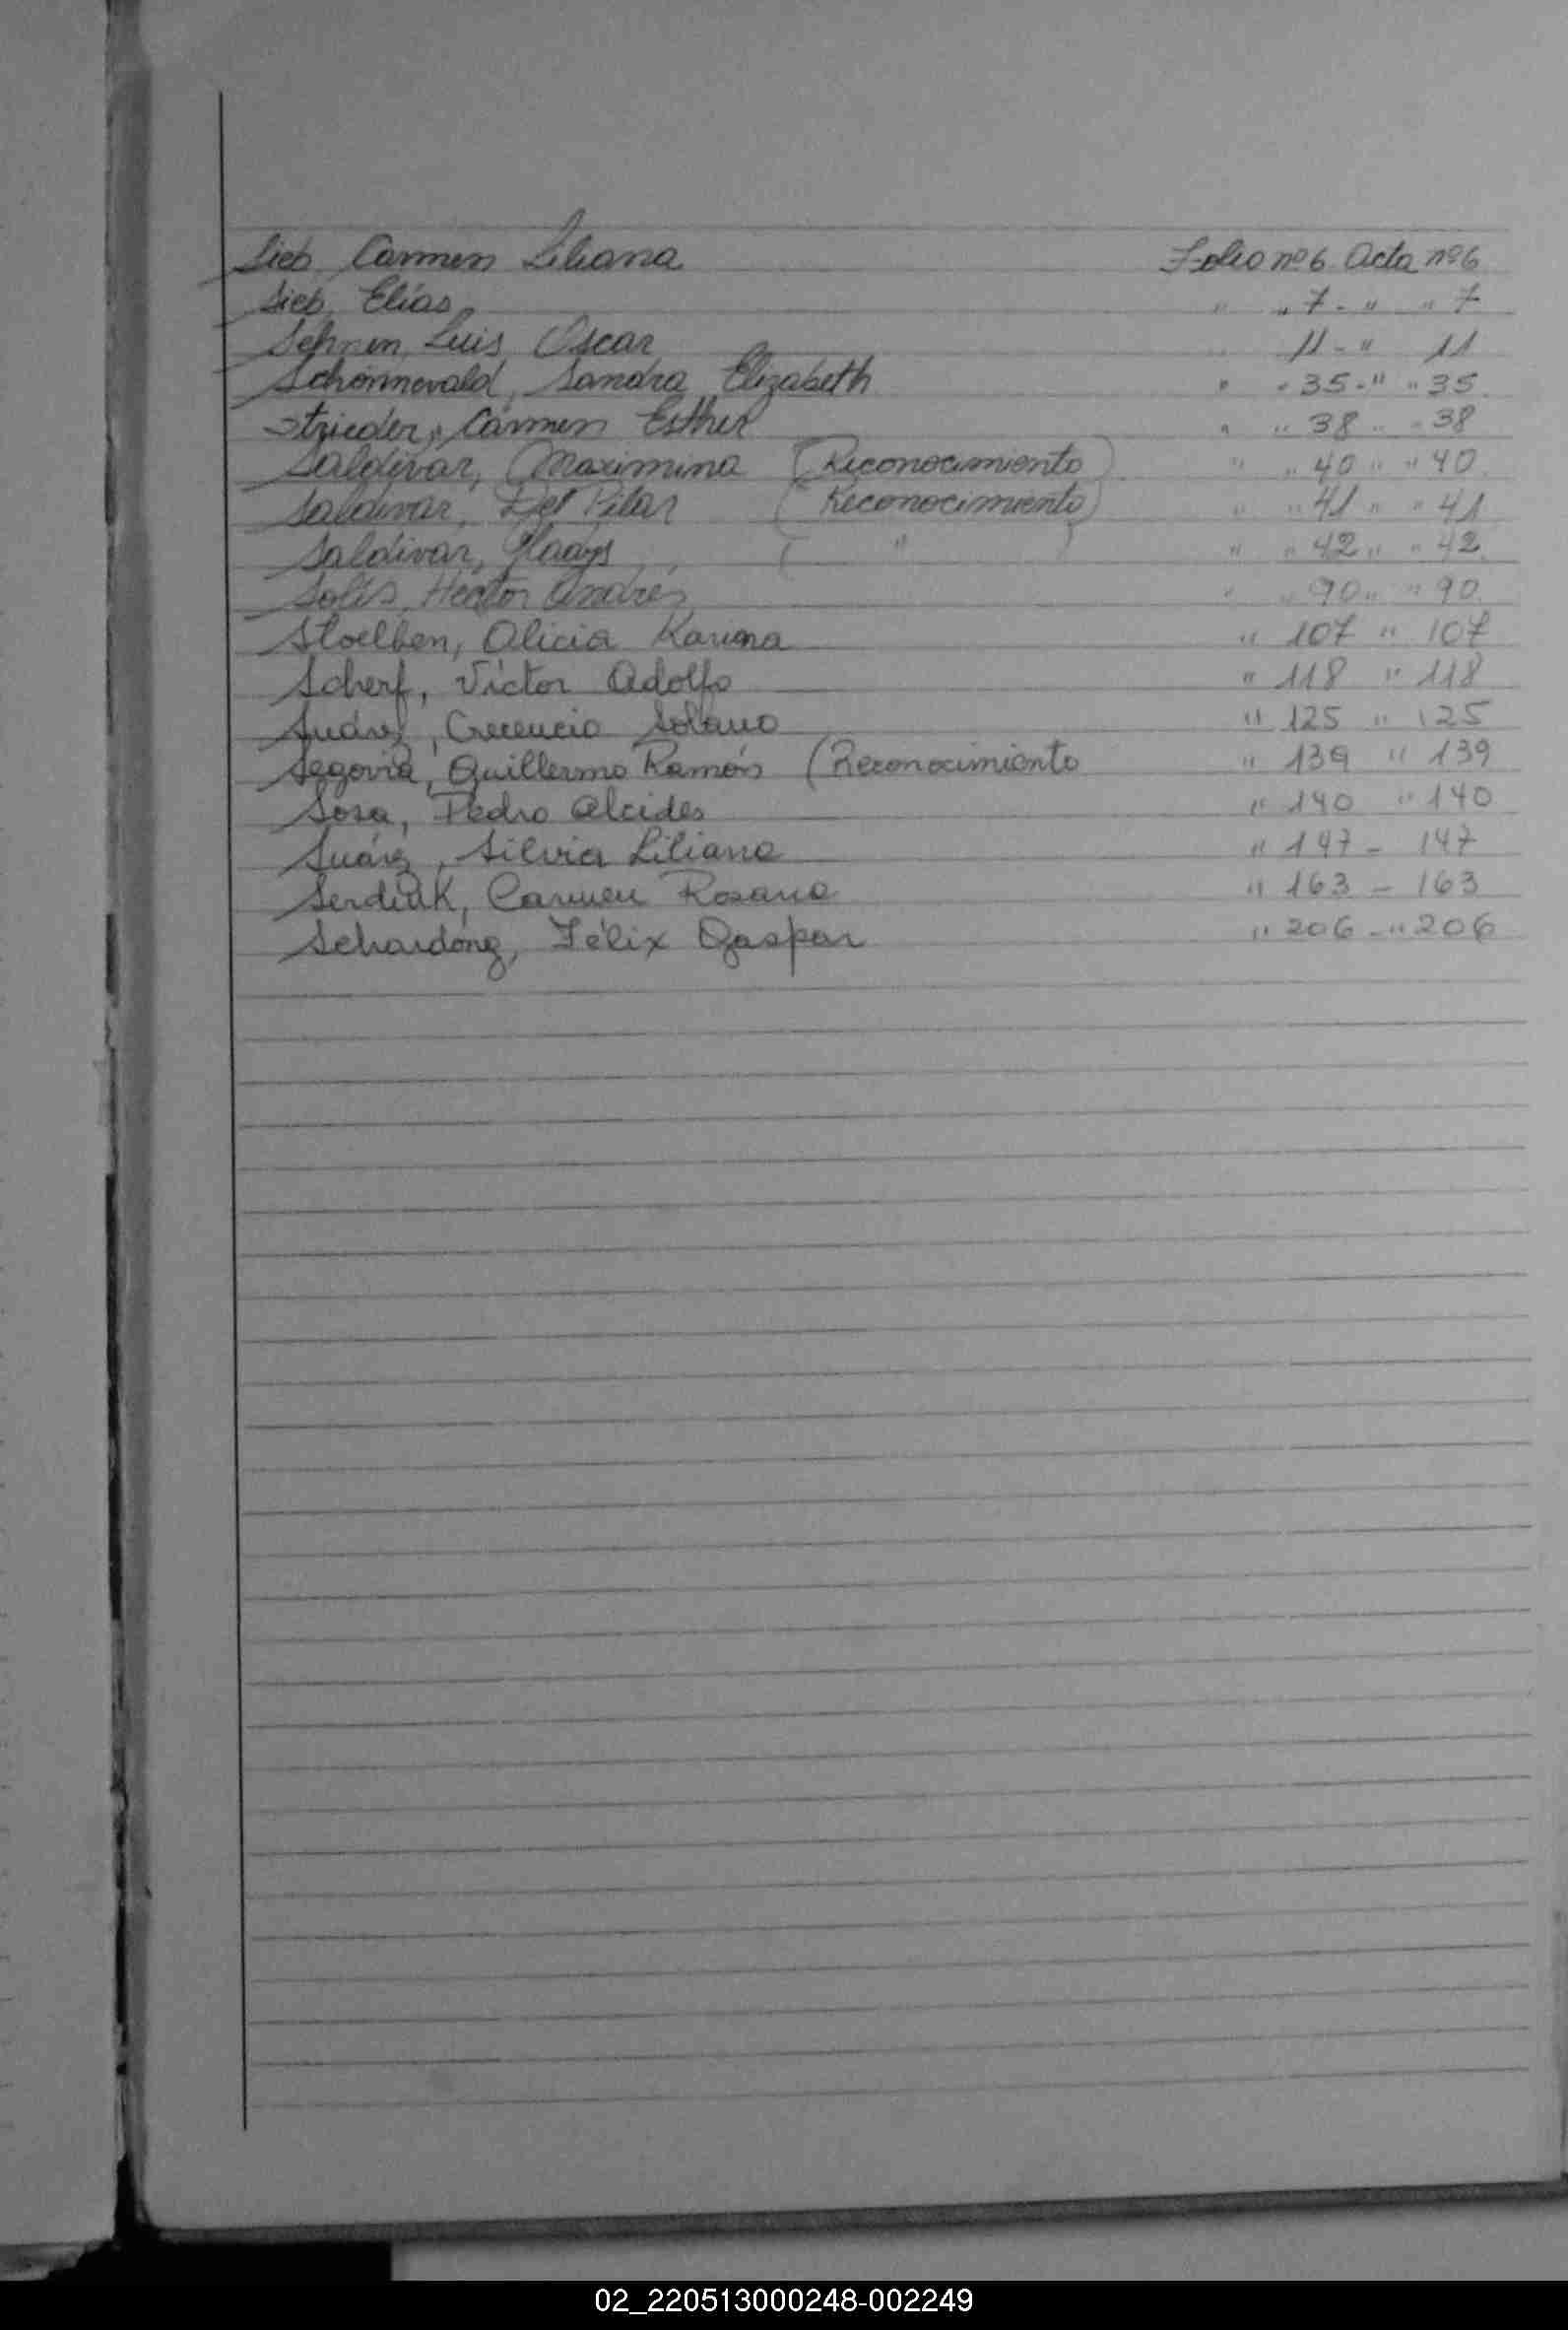 Sieb, Carmen Liliana Folio nº 6 Acta nº 6
Sieb, Elías " " 7 - " " 7
Sehnen, Luis Oscar 11 - " 11
Schonnevald, Sandra Elizabeth " " 35 - " " 35
Strieder, Carmen Esther " " 38 " " 38
Saldivar, Maximina (Reconocimiento) " " 40 " " 40
Saldivar, Del Pilar (Reconocimiento) " " 41 " " 41
Saldivar, Gladys ( " ) " " 42 " " 42
Solís, Hector Andrés " " 90 " " 90
Stoelben, Alicia Karina " 107 " 107
Scherf, Víctor Adolfo " 118 " 118
Crecencio Solano " 125 " 125
Segovia, Guillermo Ramón (Reconocimiento " 139 " 139
Sosa, Pedro Alcides " 140 " 140
Suárez, Silvia Liliana " 147 - 147
Serdiuk, Carmen Rosana " 163 - 163
Schardong, Félix Gaspar " 206 - " 206
02_220513000248-002249